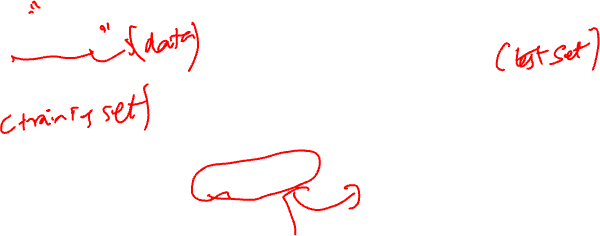 (data)
(test set)
(training set)